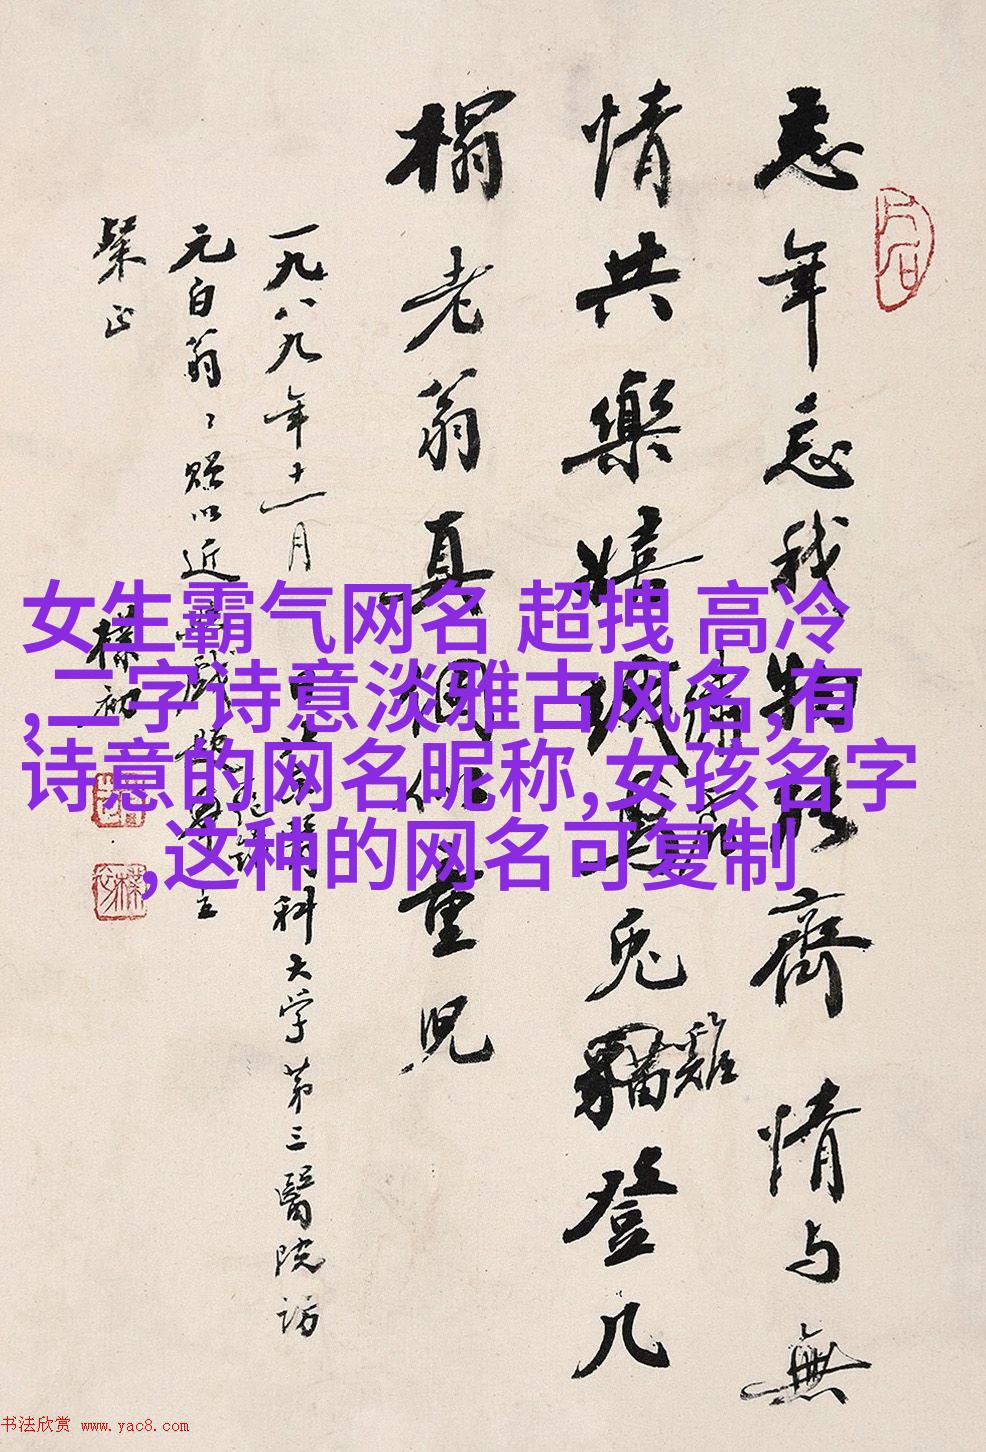 忘年忘我物能齊情与無
情共樂嬉
兎貓登几
雞
榻老翁真個似童児
一九八九年十一月
科大学第三醫院訪
元白翁〻贈以近
樸初
粲正
女生霸气网名 超拽 高冷
,二字诗意淡雅古风名,有
诗意的网名昵称,女孩名字
,这种的网名可复制
书法欣赏 www.yac8.com